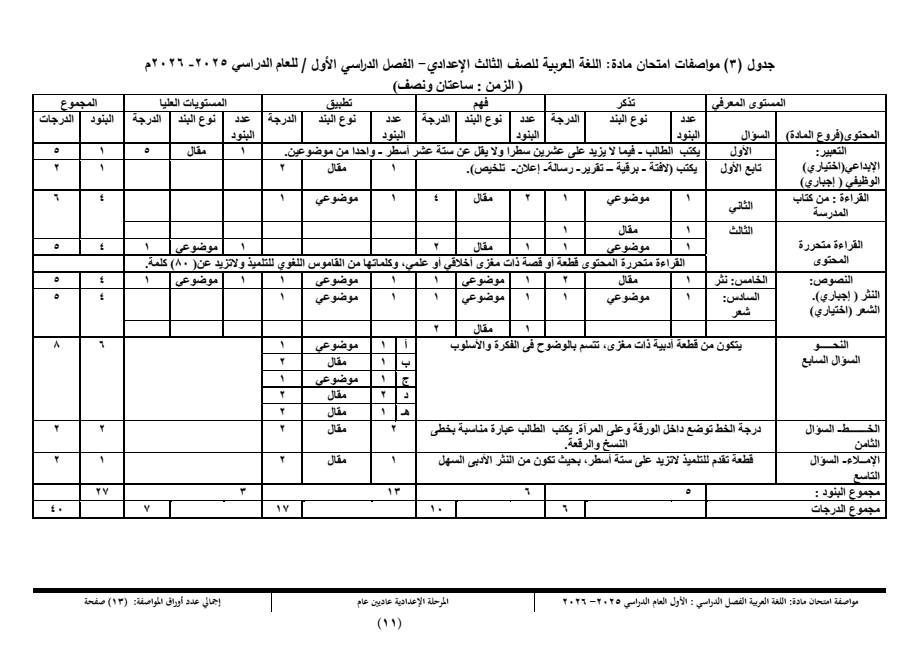 جدول (٣) مواصفات امتحان مادة: اللغة العربية للصف الثالث الإعدادي– الفصل الدراسي الأول / للعام الدراسي ٢٠٢٥- ٢٠٢٦م
( الزمن : ساعتان ونصف)
المستوى المعرفي تذكر فهم تطبيق المستويات العليا المجموع
المحتوى(فروع المادة) السؤال عدد البنود نوع البند الدرجة عدد البنود نوع البند الدرجة عدد البنود نوع البند الدرجة عدد البنود نوع البند الدرجة البنود الدرجات
التعبير: الأول يكتب الطالب - فيما لا يزيد على عشرين سطرا ولا يقل عن ستة عشر أسطر - واحدا من موضوعين. ١ مقال ٥ ١ ٥
الإبداعي(اختياري)
الوظيفي ( إجباري) تابع الأول يكتب (لافتة - برقية – تقرير- رسالة- إعلان- تلخيص). ١ مقال ٢ ١ ٢
القراءة : من كتاب المدرسة الثاني ١ موضوعي ١ ٢ مقال ٤ ١ موضوعي ١ ٤ ٦
القراءة متحررة المحتوى الثالث ١ مقال ١
١ موضوعي ١ ١ مقال ٢ ١ موضوعي ١ ٤ ٥
القراءة متحررة المحتوى قطعة أو قصة ذات مغزى أخلاقي أو علمي، وكلماتها من القاموس اللغوي للتلميذ ولاتزيد عن( ٨٠) كلمة.
النصوص: الخامس: نثر ١ مقال ٢ ١ موضوعي ١ ١ موضوعي ١ ١ موضوعي ١ ٤ ٥
النثر ( إجباري). السادس: ١ موضوعي ١ ١ موضوعي ١ ١ موضوعي ١ ٤ ٥
الشعر (اختياري) شعر
١ مقال ٢
النحـــو يتكون من قطعة أدبية ذات مغزى، تتسم بالوضوح في الفكرة والأسلوب أ ١ موضوعي ١ ٦ ٨
السؤال السابع ب ١ مقال ٢
ج ١ موضوعي ١
د ٢ مقال ٢
هـ ١ مقال ٢
الخـــط- السؤال الثامن درجة الخط توضع داخل الورقة وعلى المرآة. يكتب الطالب عبارة مناسبة بخطى النسخ والرقعة. ٢ مقال ٢ ٢ ٢
الإملاء- السؤال التاسع قطعة تقدم للتلميذ لاتزيد على ستة أسطر، بحيث تكون من النثر الأدبى السهل ١ مقال ٢ ١ ٢
مجموع البنود : ٥ ٦ ١٣ ٣ ٢٧
مجموع الدرجات ٦ ١٠ ١٧ ٧ ٤٠
مواصفة امتحان مادة: اللغة العربية الفصل الدراسي : الأول العام الدراسي ٢٠٢٥– ٢٠٢٦ المرحلة الإعدادية عاديين عام إجمالي عدد أوراق المواصفة: (١٣) صفحة
(١١)